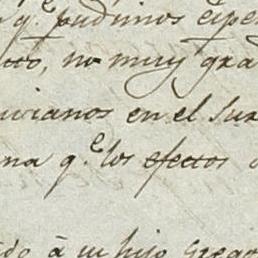 q.e pudimos espe
cto, no muy gra
ivianos en el Sur
na q.e los efectos
do à su hijo Grego